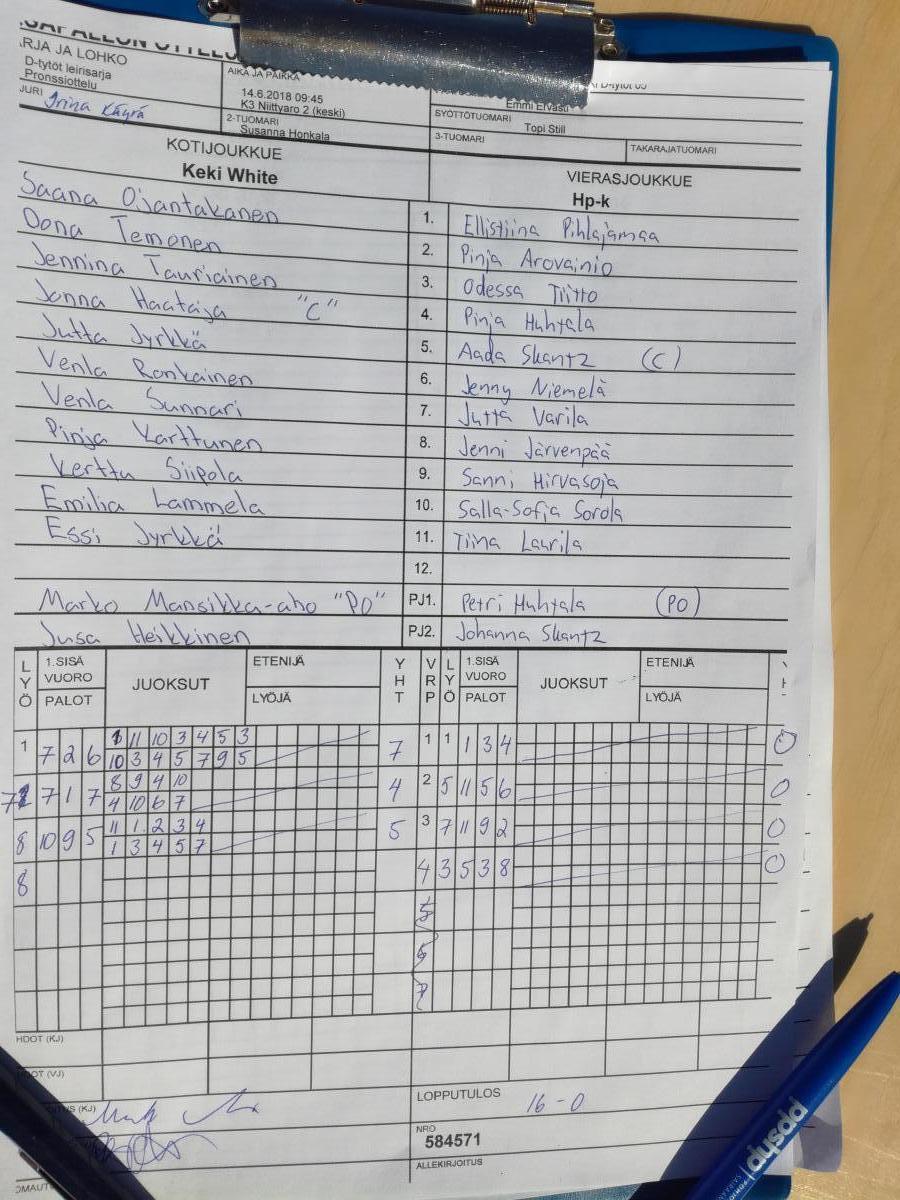 ARJA JA LOHKO
D-tytöt leirisarja
Pronssiottelu
JURI Irina Käyrä
AIKA JA PAIKKA
14.6.2018 09:45
K3 Niittyaro 2 (keski)
2-TUOMARI
Susanna Honkala
Emmi Ervasti
SYÖTTÖTUOMARI
Topi Still
3-TUOMARI TAKARAJATUOMARI
KOTIJOUKKUE VIERASJOUKKUE
Keki White Hp-k
Saana Ojantakanen 1. Ellistiina Pihlajamaa
Oona Temonen 2. Pinja Arovainio
Jennina Tauriainen 3. Odessa Tiitto
Jonna Haataja "C" 4. Pinja Huhtala
Jutta Jyrkkä 5. Aada Skantz (C)
Venla Ronkainen 6. Jenny Niemelä
Venla Sunnari 7. Jutta Varila
Pinja Karttunen 8. Jenni Järvenpää
Kerttu Siipola 9. Sanni Hirvasoja
Emilia Lammela 10. Salla-Sofia Sorola
Essi Jyrkkä 11. Tiina Laurila
12.
Marko Mansikka-aho "PO" PJ1. Petri Huhtala (PO)
Jusa Heikkinen PJ2. Johanna Skantz
LYÖ 1.SISÄ VUORO PALOT JUOKSUT ETENIJÄ LYÖJÄ YHT VRP LYÖ 1.SISÄ VUORO PALOT JUOKSUT ETENIJÄ LYÖJÄ
1 7 2 6 1 11 10 3 4 5 3 7 1 1 1 3 4 0
10 3 4 5 7 9 5
7 7 1 7 8 9 4 10 4 2 5 11 5 6 0
4 10 6 7
8 10 9 5 11 1 2 3 4 5 3 7 11 9 2 0
1 3 4 5 7
8 4 3 5 3 8 0
5
6
7
HDOT (KJ)
DOT (VJ)
OITUS (KJ)
LOPPUTULOS 16-0
NRO
584571
ALLEKIRJOITUS
OMAUT
PPSHP